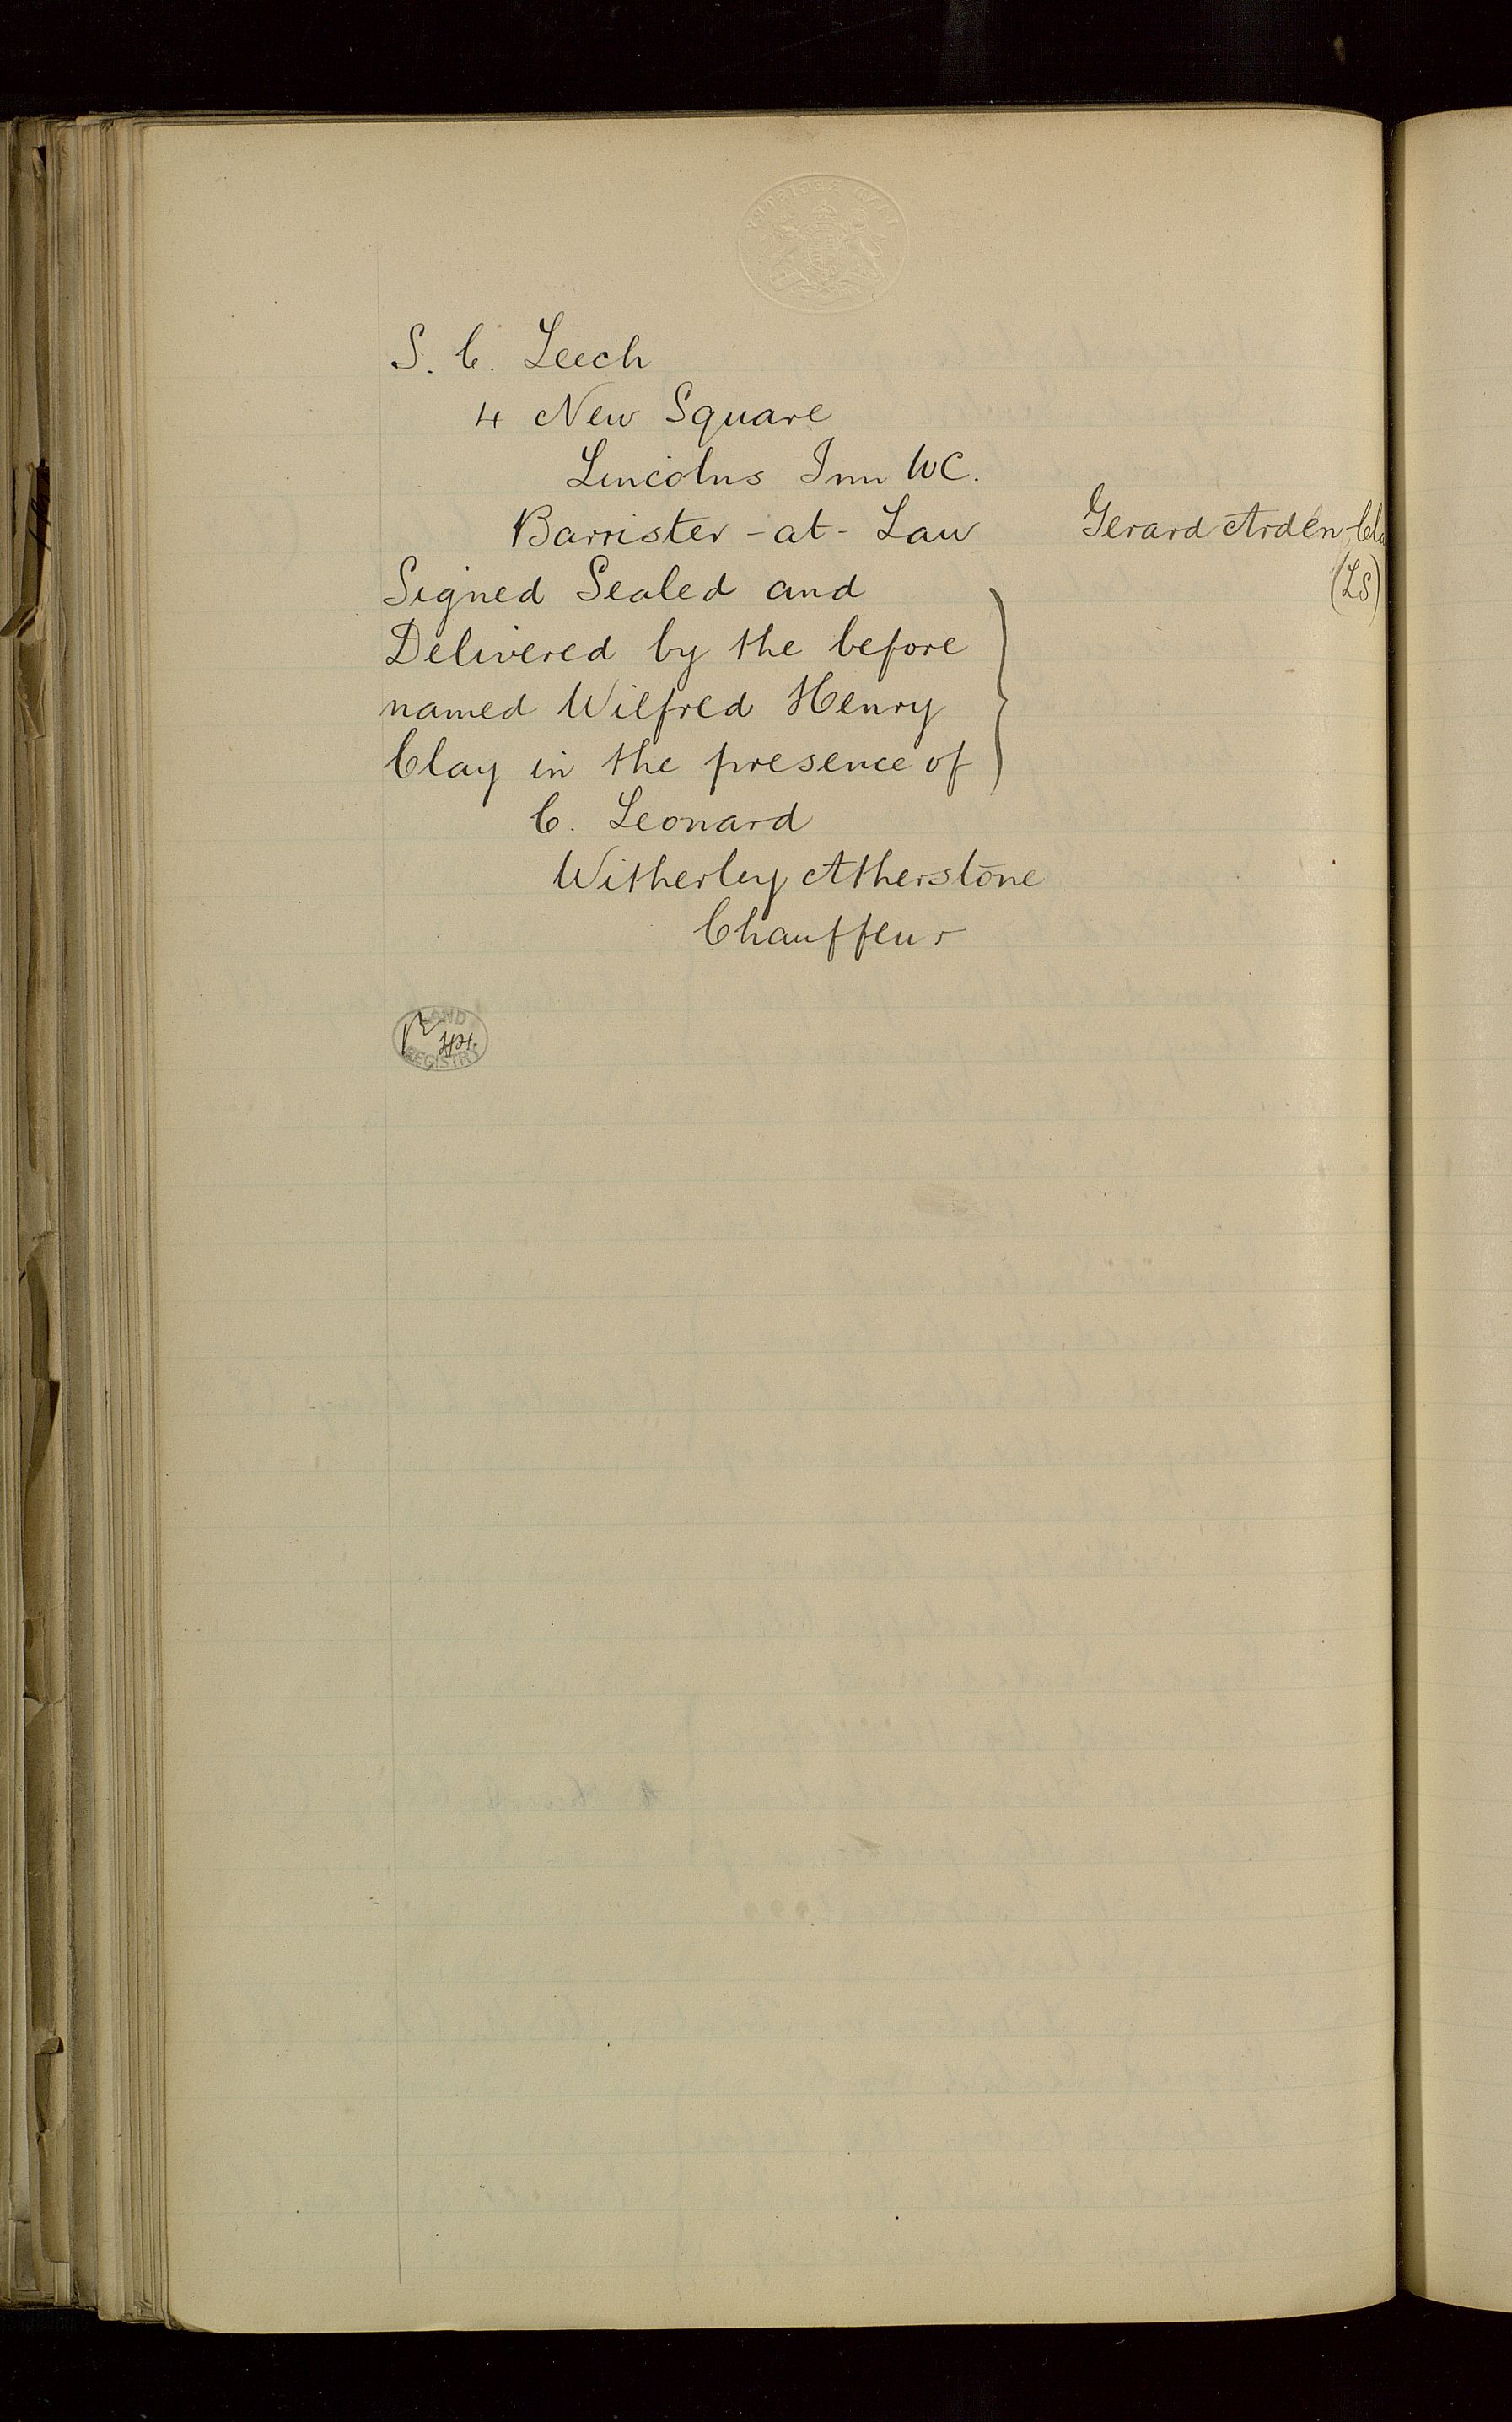 S. C. Leech
4 New Square
Lincolns Inn WC.
Barrister-at-Law Gerard Arden Cla
(LS)
Signed Sealed and
Delivered by the before
named Wilfred Henry
Clay in the presence of
C. Leonard
Witherley Atherstone
Chauffeur
LAND
REGISTRY